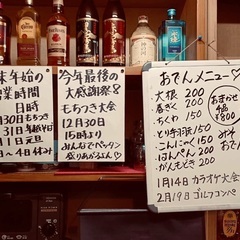 年末年始の
営業時間
日時
30日もちつき
31日年越そば
1日
～4日休み
今年最後の
大感謝祭
もちつき大会
12月30日
15時より
みんなでペッタン
盛りあがるよん
おでんメニュー♡
大根 200
巻きぐ 200
ちくわ 150
とり手羽元 150
こんにゃく 150
はんぺん 200
がんもどき 200
おまかせ
4品
¥800
みそ
おでん
1月14日 カラオケ大会
2月19日 ゴルフコンペ